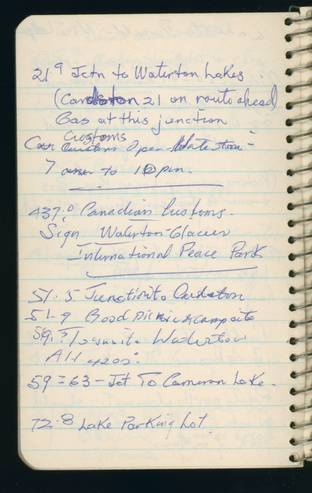 21⁹ Jctn to Waterton Lakes
(Cardston 21 on route ahead)
Gas at this junction
Customs
Customs Open
7 to 10 pm.
437.0 Canadian Customs.
Sign Waterton-Glacier
International Peace Park
51.5 Junction to Cardston
51-9 Good Picnic & campsite
Waterton
Alt 4200'
59=63 - Jct To Cameron Lake.
72.8 Lake Parking Lot.